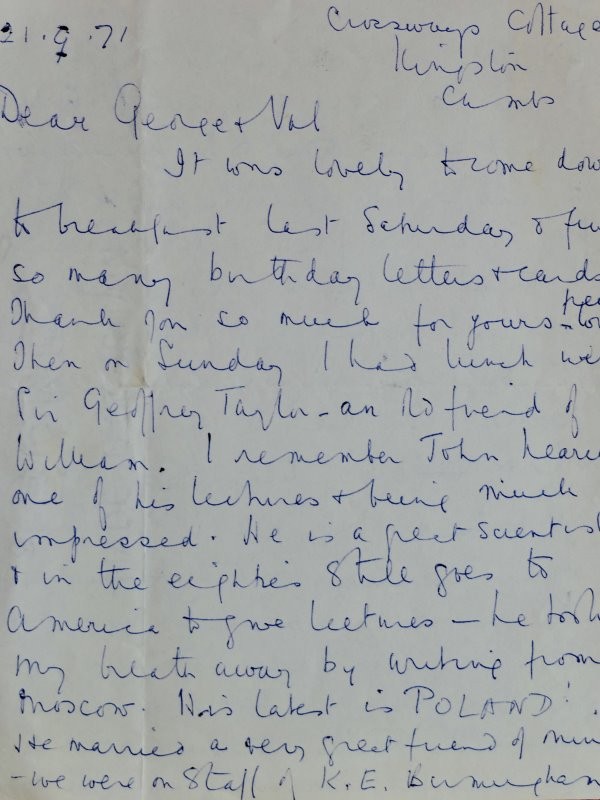 21.9.71
Crossways Cottage
Kingston
Cambs
Dear George & Val
It was lovely to come down
to breakfast last Saturday &
so many birthday letters & cards
Thank you so much for yours
Then on Sunday I had lunch
Sir Geoffrey Taylor – an old friend of
William. I remember John
one of his lectures & being much
impressed. He is a great scientist
& in the eighties still goes to
America to give lectures – he took
my breath away by writing from
Moscow. His latest is POLAND!
He married a very great friend of
– we were on Staff of K.E. Birmingham